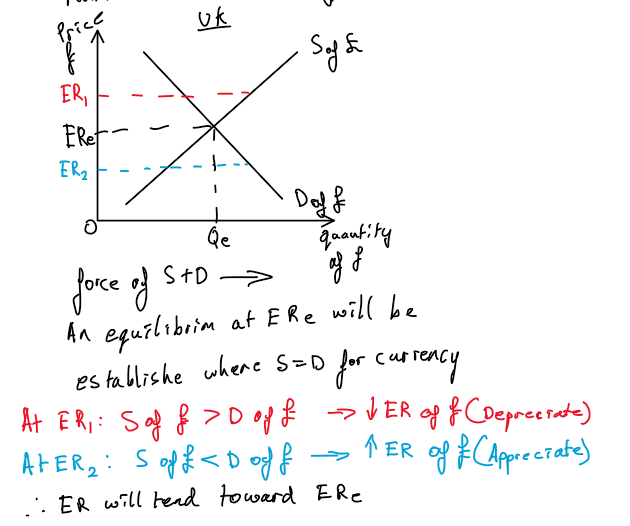 UK
Price
£
S of £
ER₁
ERe
ER₂
D of £
O
Qe
quantity
of £
force of S+D →
An equilibrim at ERe will be
establishe where S=D for currency
At ER₁: S of £ > D of £ → ↓ ER of £ (Depreciate)
At ER₂: S of £ < D of £ → ↑ ER of £ (Appreciate)
∴ ER will tend toward ERe